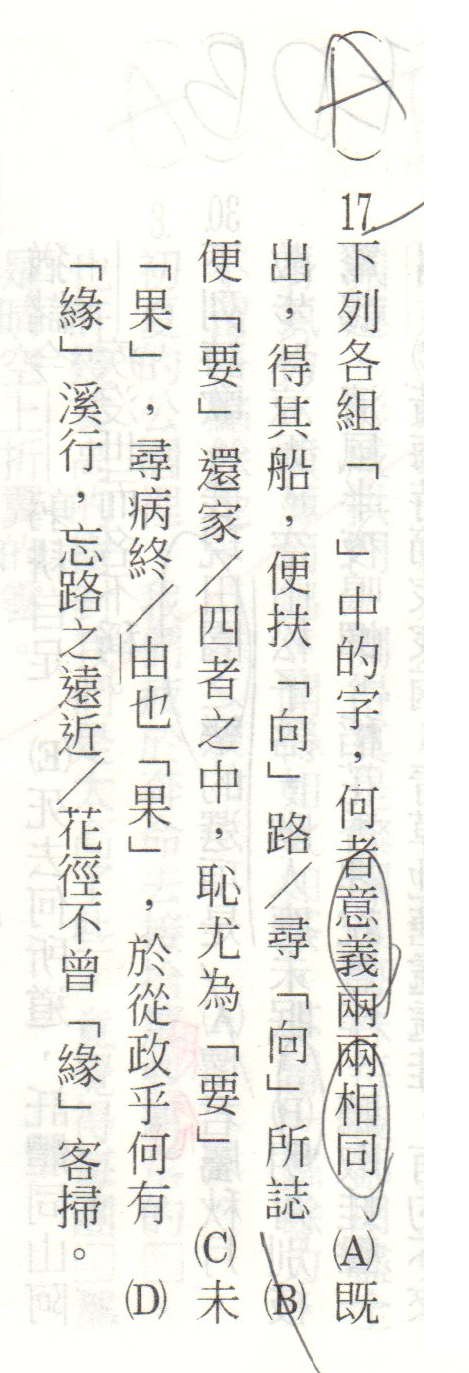 （A）17.下列各組「　」中的字，何者意義兩兩相同 (A)既
出，得其船，便扶「向」路／尋「向」所誌 (B)
便「要」還家／四者之中，恥尤為「要」 (C)未
「果」，尋病終／由也「果」，於從政乎何有 (D)
「緣」溪行，忘路之遠近／花徑不曾「緣」客掃。